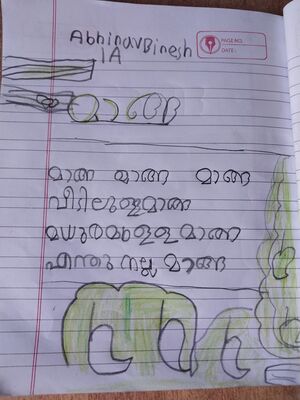 AbhinavBinesh
1A
PAGE NO.
DATE:
മാങ്ങ
മാങ്ങ മാങ്ങ മാങ്ങ
വീടിലുള്ളമാങ്ങ
മധുരമുള്ള മാങ്ങ
എന്തു നല്ല മാങ്ങ